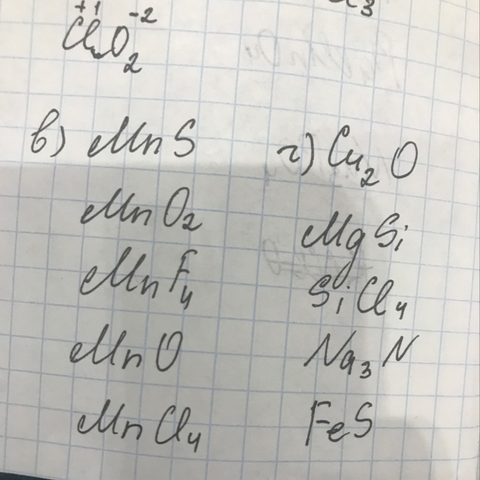 +1 -2
ClO₂
в) MnS
MnO₂
MnF₄
MnO
MnCl₄
г) Cu₂O
MgSi
SiCl₄
Na₃N
FeS